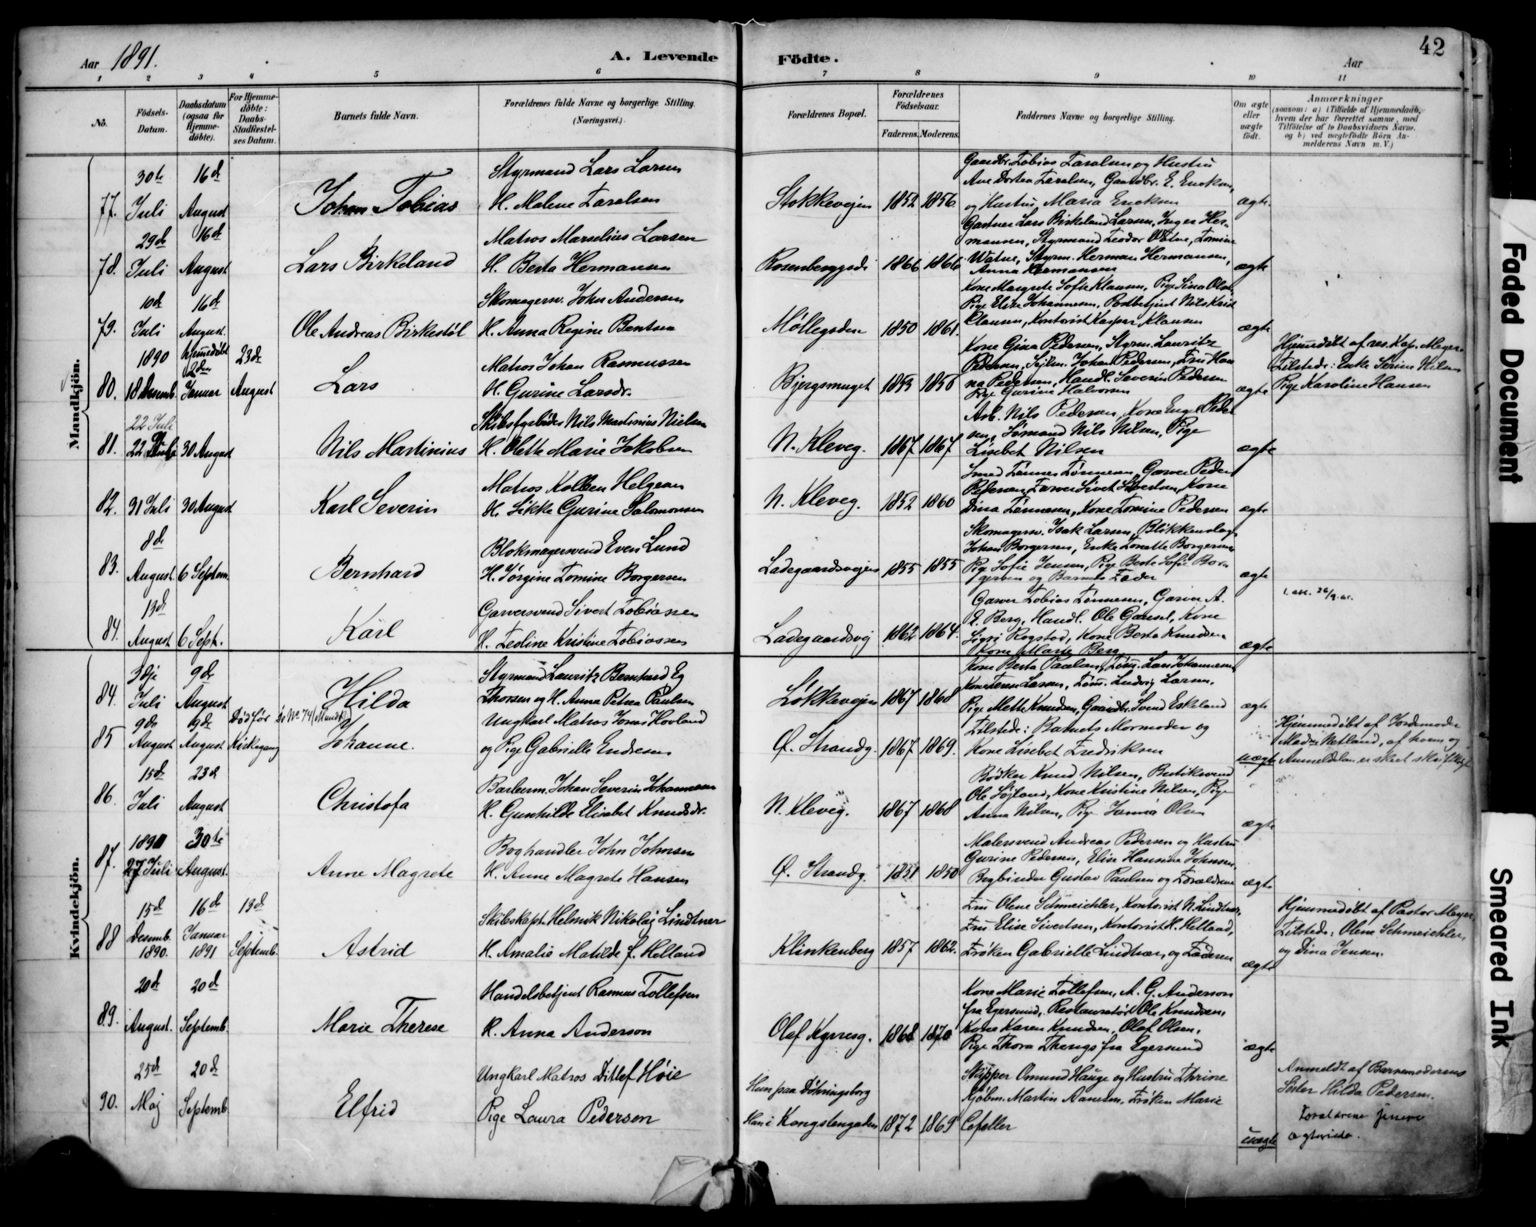 Aar 1891.
A. Levende Födte.
Aar
42
1 2 3 4 5 6 7 8 9 10 11
No.
Födsels-Datum.
Daabsdatum (ogsaa for Hjemme-döbte).
For Hjemme-döbte: Daabs-Stadfæstel-ses Datum.
Barnets fulde Navn.
Forældrenes fulde Navne og borgerlige Stilling. (Næringsvei.)
Forældrenes Bopæl.
Forældrenes Födselsaar.
Faderens. Moderens.
Faddernes Navne og borgerlige Stilling.
Om ægte eller uægte født.
Anmærkninger
(saasom: a) i Tilfælde af Hjemmedaab, hvem der har forrettet samme, med Tilföielse af to Daabsvidners Navne, og b) ved uægte födte Börn Anmelderens Navn m. V.)
Mandkjön.
77. 30te Juli 16d August Johan Tobias
Styrmand Lars Larsen
H. Malene Taralsen
Stokkevejen 1852 1856
Gaardbr. Tobias Taralsen og Hustru
Ane Dortea Taralsen, Gaardbr. E. Ericksen,
og Hustru, Maria Ericksen
ægte
78. 29de Juli 16d August Lars Birkeland
Matros Marselius Larsen
H. Berta Hermansen
Rosenberggd. 1866 1866
Gartner Lars Birkeland Larsen, Inger Her-
mansen, Styrmand Teodor Watne, Tomine
Watne, Styrm. Herman Hermansen,
Anna Hermansen
ægte
79. 10d Juli 16d August Ole Andreas Birkestøl
Skomagersv. John Andersen
H. Anna Regine Bentsen
Møllegaden 1850 1861
Kone Margrete Sofie Klausen, Pige Sina Olsen
Pige Elise Johannesen, Postbetjent Nils Krist
Clausen, Kontorist Kasper Klausen
ægte
80. 1890 18 Desemb. hjemmedøbt 2den Januar 23de August Lars
Matros Johan Rasmussen
H. Gurine Larsdr.
Bjergsmuget 1853 1856
Kone Gina Pedersen, Styrm. Lauritz
Pedersen, Sejlm. Johan Pedersen, Fru Han
na Pedersen, Handl. Severin Pedersen
Pige Gurine Halvorsen
ægte
Hjemmedøbt af res. Kap. Meyer.
Tilstede: Enke Serine Nilsen
Pige Karoline Hansen
81. 22 Juli
22 Juli 30 August Nils Martinius
Skibstømmer Nils Martinius Nielsen
H. Olette Marie Jakobsen
N. Kleveg. 1867 1867
Arb. Nils Pedersen, Kone Enge Peder
sen, Sømand Nils Nilsen, Pige
Lisebet Nilsen
ægte
82. 31 Juli 30 August Karl Severin
Matros Kolben Helgesen
H. Sikke Gurine Salamonsen
N. Kleveg. 1852 1860
Smed Tønnes Tønnesen, Garver Peder
Pedersen, Farver Sivert Sivertsen, Kone
Dina Tønnesen, Kone Tomine Pedersen
ægte
83. 8d August 6 Septem. Bernhard
Blokmagersvend Even Lund
H. Jørgine Tomine Borgersen
Ladegaardsvejen 1855 1855
Skomagersv. Isak Larsen, Blikkenslag.
Johan Borgersen, Enke Tonette Borgersen
Pig. Sofie Jensen, Pige Berte Sofie Bor-
gersen og Barnets Fader
ægte
84. 13d August 6 Sept. Karl
Garversvend Sivert Tobiassen
H. Teoline Kristine Tobiassen
Ladegaardsvej 1862 1864.
Garver Tobias Tønnesen, Garver A.
E. Berg, Handl. Ole Gausel, Kone
Sigri Rogstad, Kone Berta Knudsen
Kone Marie Berg
ægte
Kvindekjön.
84. 3dje Juli 9d August Hilda
Styrmand Lauritz Bernhard Eg
Thorsen og H. Anna Petrea Paulsen
Løkkevejen 1867 1868
Kone Berta Paulsen, Tøm. Lars Johannesen
Kone Tere Larsen, Tøm. Ludvig Larsen,
Pige Mette Knudsen, Gaardbr. Svend Eskeland
ægte
85 9de August 9d August Død før Kirkegang Johanne.
Ungkarl Matros Jonas Hovland
og Pige Gabrielle Endresen
Ø. Strandg. 1867 1869.
Tilstede: Barnets Mormoder og
Kone Lisebet Fredriksen
uægte
Hjemmedøbt af Jordemoder
Madm. Netland, af hvem og
Anmeldelsen er skeet
86 15d Juli 23d August Christofa
Barberm. Johan Severin Johannesen
H. Gunhilde Elisabet Knudsdr.
N. Kleveg. 1867 1868
Bødker Knud Nilsen, Butiksvend
Ole Højland, Kone Kristine Nilsen, Pige
Anna Nilsen, Pige Janna Olsen
ægte
87. 1891 27 Juli 30te August Anne Magrete
Boghandler John Johnsen
H. Anne Magrete Hansen
Ø. Strandg. 1851 1850
Malersvend Andreas Pedersen og Hustru
Gurine Pedersen, Elise Hansine Johnsen,
Bogbinder Gustav Paulsen og Forældrene
ægte
88 15d Desemb. 1890. 16d Januar 1891 13d Septemb. Astrid
Skibskapt. Helmik Nikolaj Lindtner
H. Amalie Matilde f. Helland
Klinkenberg 1857 1862.
Fru Olene Schmeichler, Kontorist N. Lindtner,
Fru Elise Sivertsen, Kontorist H. Helland,
Frøken Gabrielle Lindtner, og Faderen
ægte
Hjemmedøbt af Pastor Meyer,
Tilstede: Olene Schmeichler,
og Dina Jensen.
89. 20d August 20d Septemb. Marie Therese
Handelsbetjent Rasmus Tollefsen
H. Anna Anderson
Olaf Kyrresg. 1868 1870
Kone Marie Tollefsen, A. G. Anderson
fra Egersund, Restauratør Ole Knudsen,
Kone Karen Knudsen, Olaf Olsen,
Pige Thora Therings fra Egersund
ægte
90. 25d Maj 20d Septemb. Elfrid
Ungkarl Matros Ditlef Høie
Pige Laura Pederson
Hun paa Döhringsborg
Han i Kongstengaden 1872 1869
Skipper Omund Hauge og Hustru Thrine
Kjøbm. Martin Aanesen, Frøken Marie
Cofeller
uægte
Anmeldt af Barnemoderens
Søster Hilda Pedersen.
Forældrene senere
ægteviede.
Faded Document
Smeared Ink